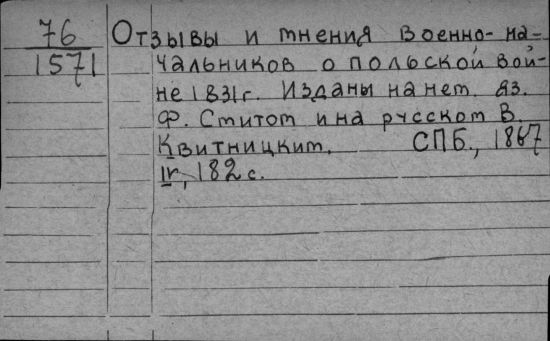 76 Отзывы и мнения военно-на-
1571 чальников о польской вой-
не 1831г. Изданы на нем. яз.
Ф. Смитом и на русском В.
Квитницким. СПБ., 1867
IV, 182 с.